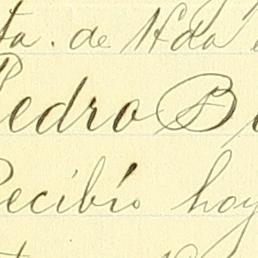 ta. de Hda
Pedro B
Recibío hoy